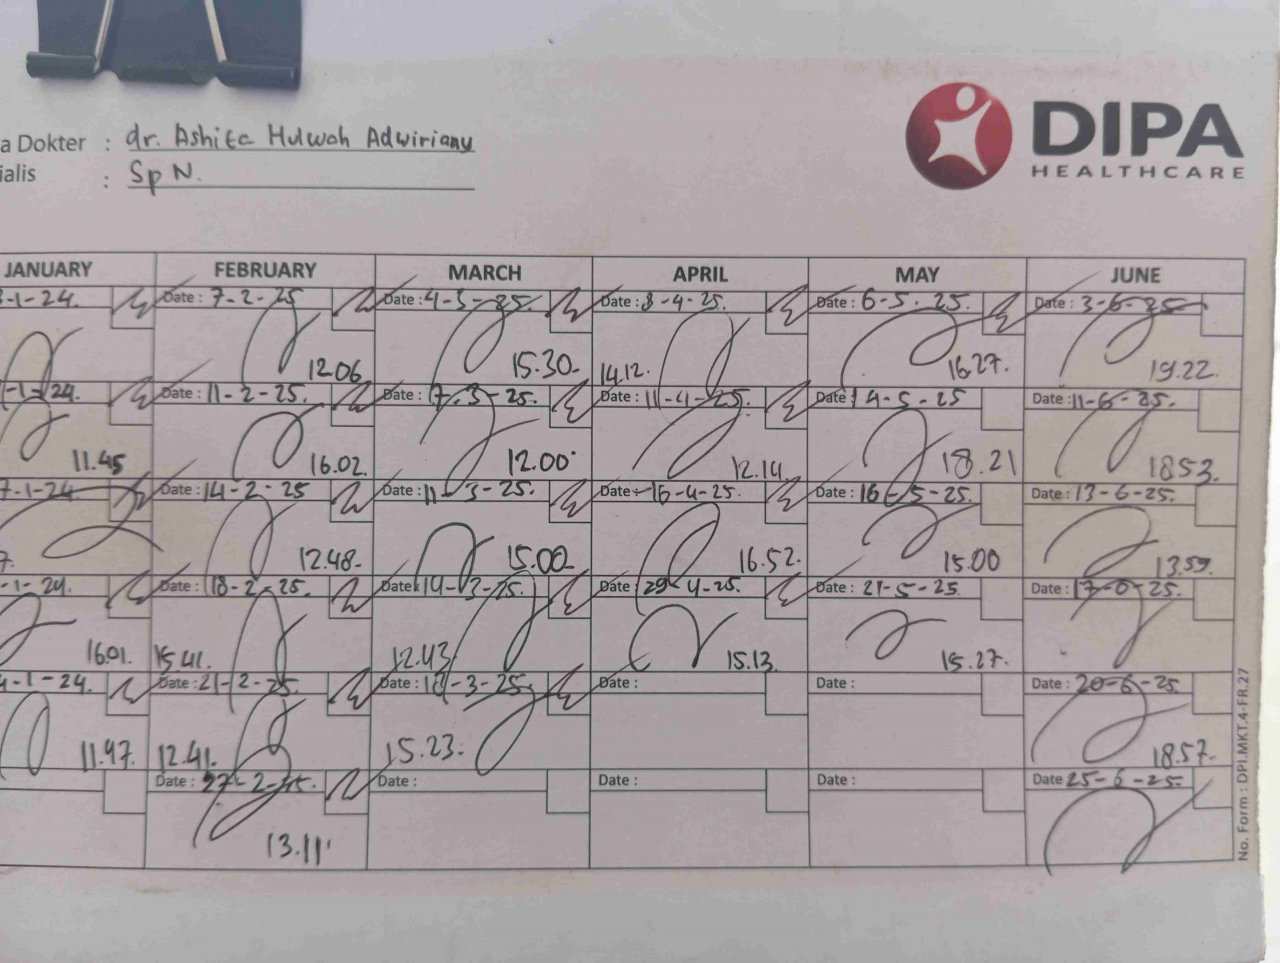 a Dokter : dr. Ashita Hulwah Adwirianu
ialis : Sp N.
DIPA
HEALTHCARE
JANUARY FEBRUARY MARCH APRIL MAY JUNE
-1-24. Date : 7-2-25 Date : 4-3-25. Date : 8-4-25. Date : 6-5.25. Date : 3-6-25
12.06 15.30. 14.12. 16.27. 19.22.
-1-24. Date : 11-2-25. Date : 7.3-25. Date : 11-4-25. Date 14-5-25 Date : 11-6-25.
11.45 16.02. 12.00 12.14. 18.21 1853.
7-1-24 Date : 14-2-25 Date : 11-3-25. Date : 16-4-25. Date : 16-5-25. Date : 13-6-25.
7. 12.48. 15.00 16.52. 15.00 13.59.
-1-24. Date : 18-2-25. Date : 14-3-25. Date : 29-4-25. Date : 21-5-25 Date : 17-6-25.
16.01. 15.41. 12.43 15.13. 15.27.
-1-24. Date : 21-2-25. Date : 18-3-25. Date : Date : Date : 20-6-25.
11.47. 12.41. 15.23. 18.57.
Date : 27-2-25. Date : Date : Date : Date 25-6-25.
13.11
No. Form : DPI.MKT.4-FR.27